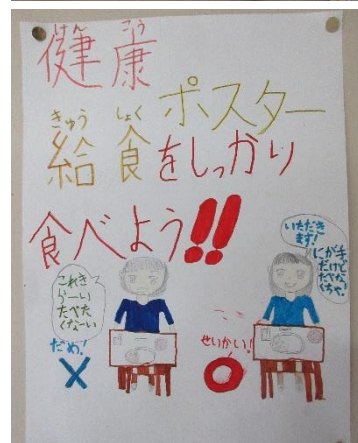 けん こう
健康
ポスター
きゅう しょく
給食をしっかり
食べよう!!
これき
らーい
たべた
くなーい
だめ!
×
いただき
ます!
にが手
だけど
たべな
くちゃ。
せいかい!
○